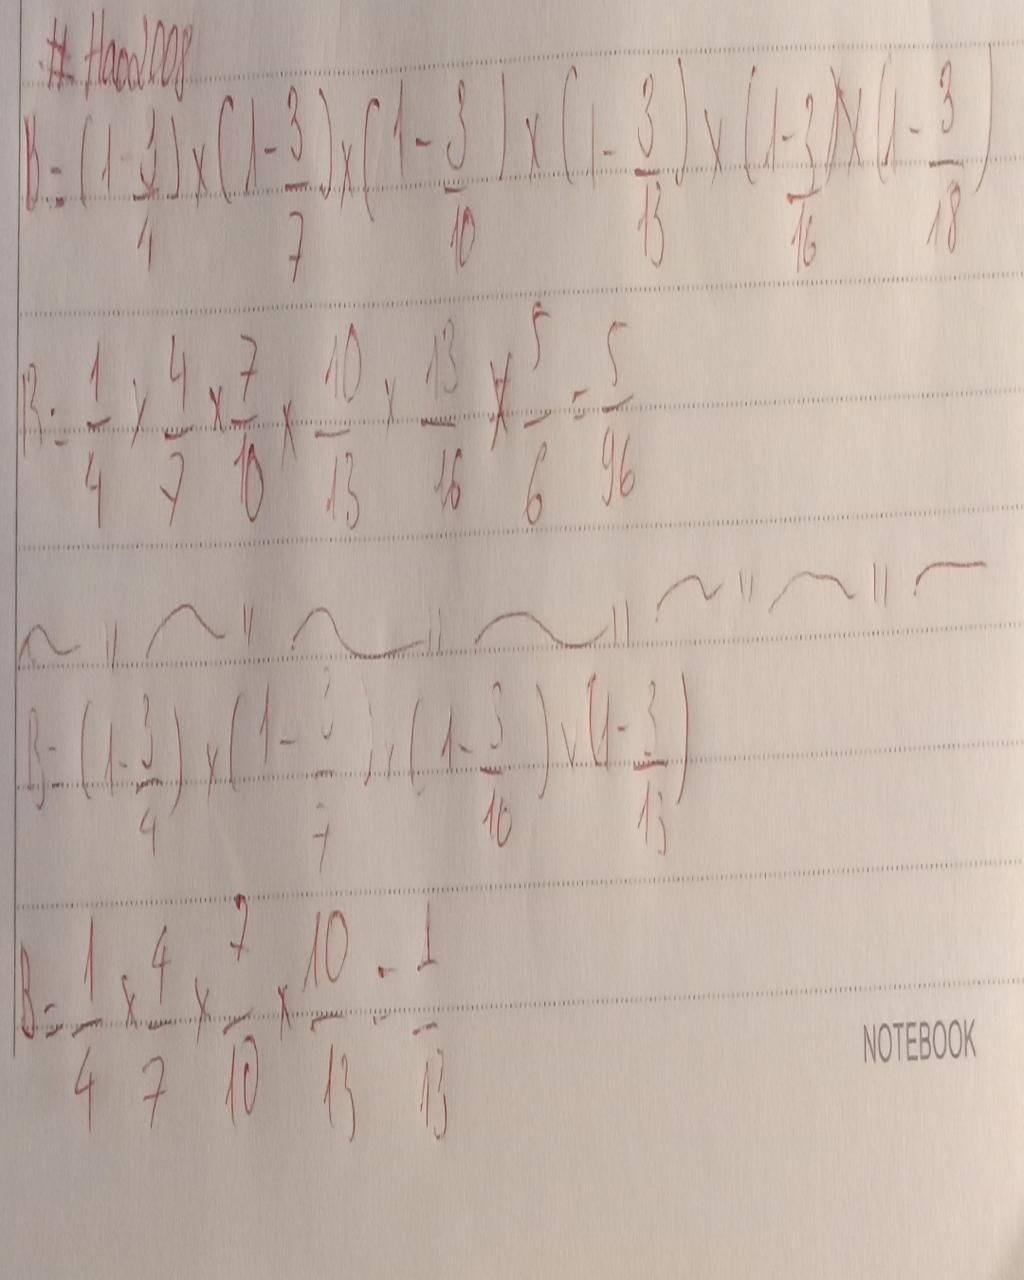 # Haoa2008
B = (1 - 3/4) x (1 - 3/7) x (1 - 3/10) x (1 - 3/13) x (1 - 3/16) x (1 - 3/18)
B = 1/4 x 4/7 x 7/10 x 10/13 x 13/16 x 5/6 = 5/96
B = (1 - 3/4) x (1 - 3/7) x (1 - 3/10) x (1 - 3/13)
B = 1/4 x 4/7 x 7/10 x 10/13 = 1/13
NOTEBOOK